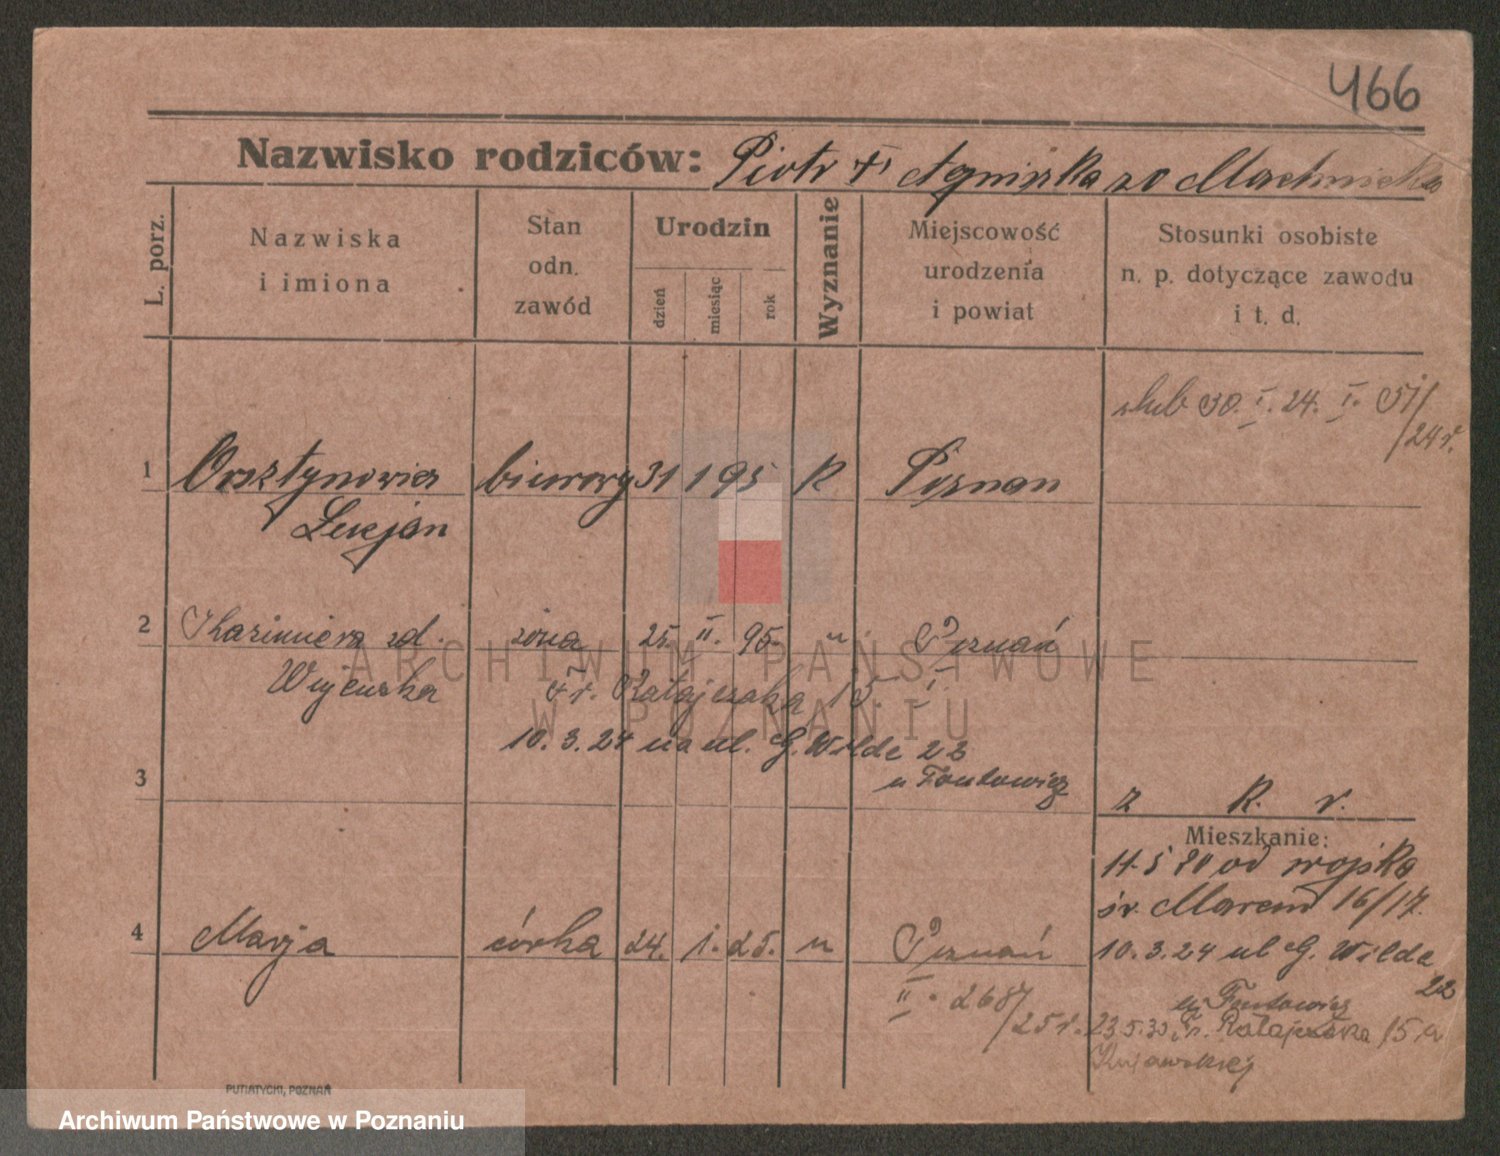 466
Nazwisko rodziców: Piotr Agnieszka zd
L. porz.
Nazwiska
i imiona
Stan
odn.
zawód
Urodzin
dzień
miesiąc
rok
Wyznanie
Miejscowość
urodzenia
i powiat
Stosunki osobiste
n. p. dotyczące zawodu
i t. d.
ślub 30. I. 24. I. 51/
/24 r.
1 Orsztynowicz biurowy 31 1 95 K Poznan
Lucjan
2 Kazimiera zd. żona 25. II. 95. u Poznań
Fr. Ratajczaka 15. I
10.3.24 na ul. G. Wilde 22
u Fontowicz
3
z K. r.
Mieszkanie:
11.5 20 od wojska
św. Marcin 16/17.
4 Marja córka 24. 1. 25. u Poznań
10.3.24 ul G. Wilda
22
II. 2687
/25 r.
u Fontowicz
23.5.33. Fr. Ratajczaka 15 u
PUTIATYCKI, POZNAŃ
ARCHIWUM PAŃSTWOWE
W POZNANIU
Archiwum Państwowe w Poznaniu